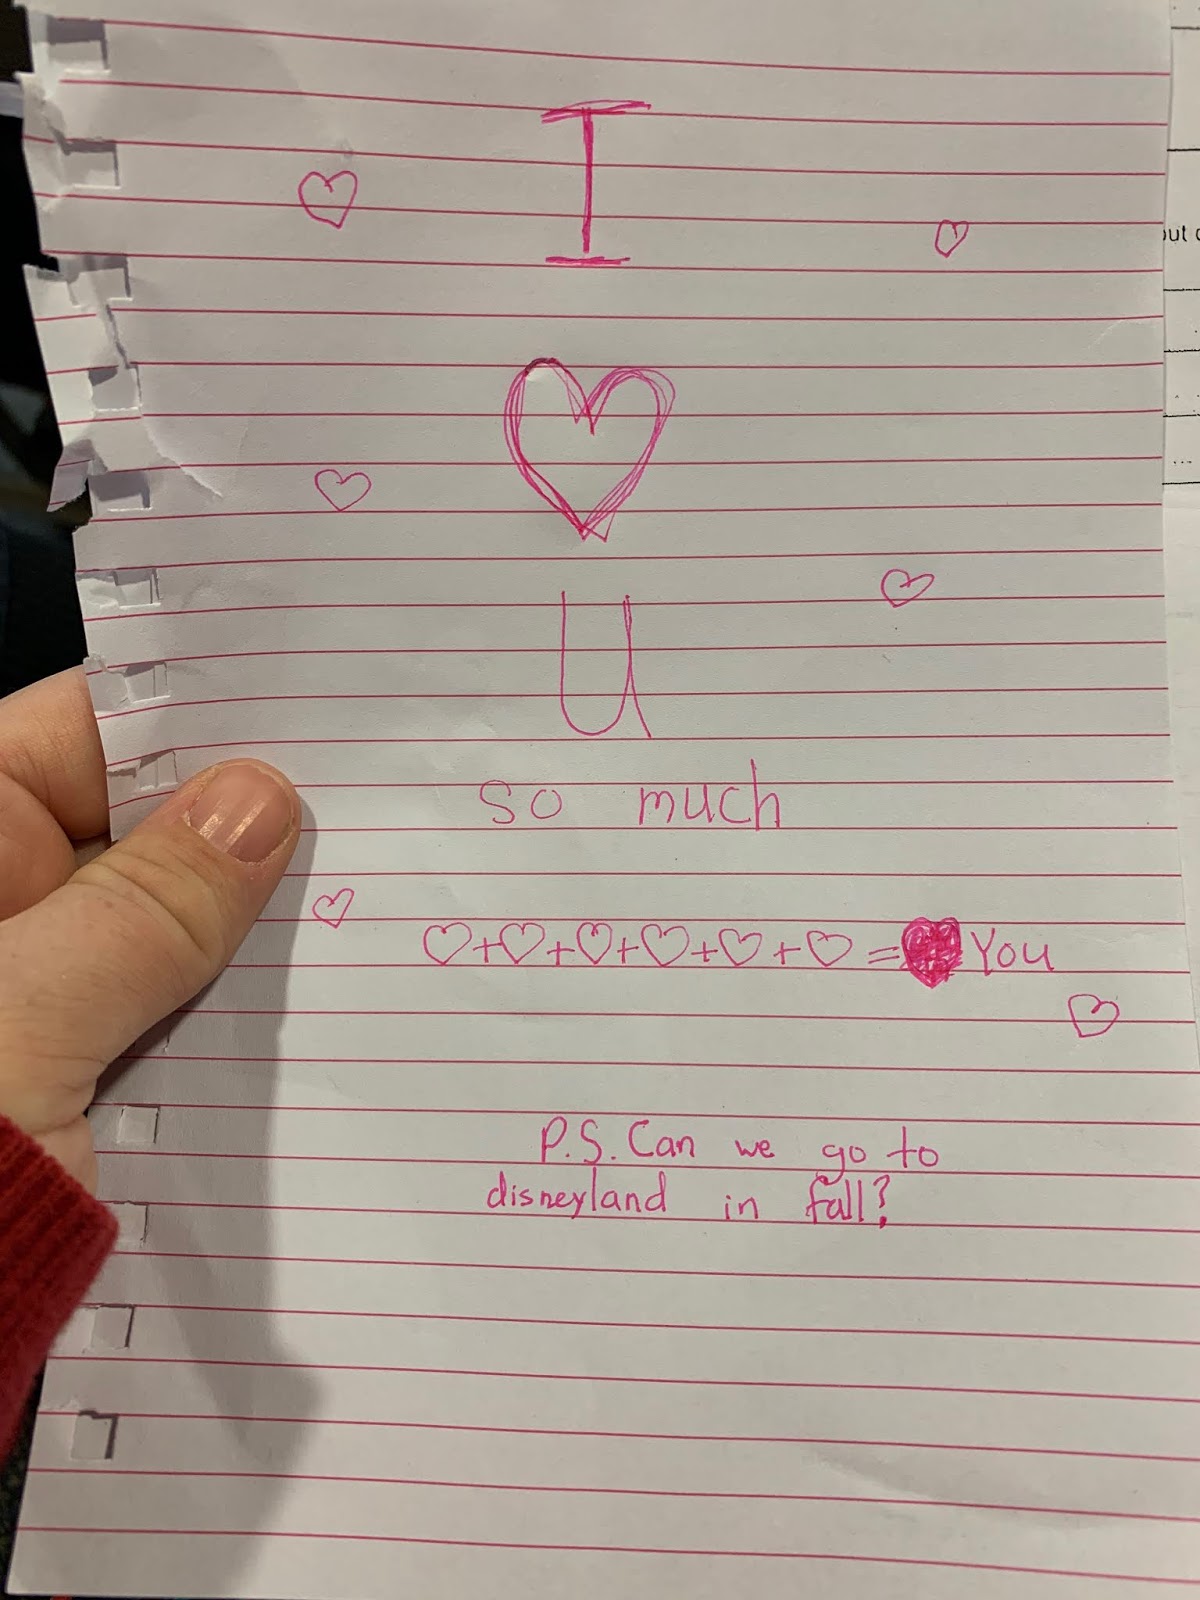 I
♡
u
so much
♡+♡+♡+♡+♡+♡=♥ You
P.S. Can we go to
disneyland in fall?